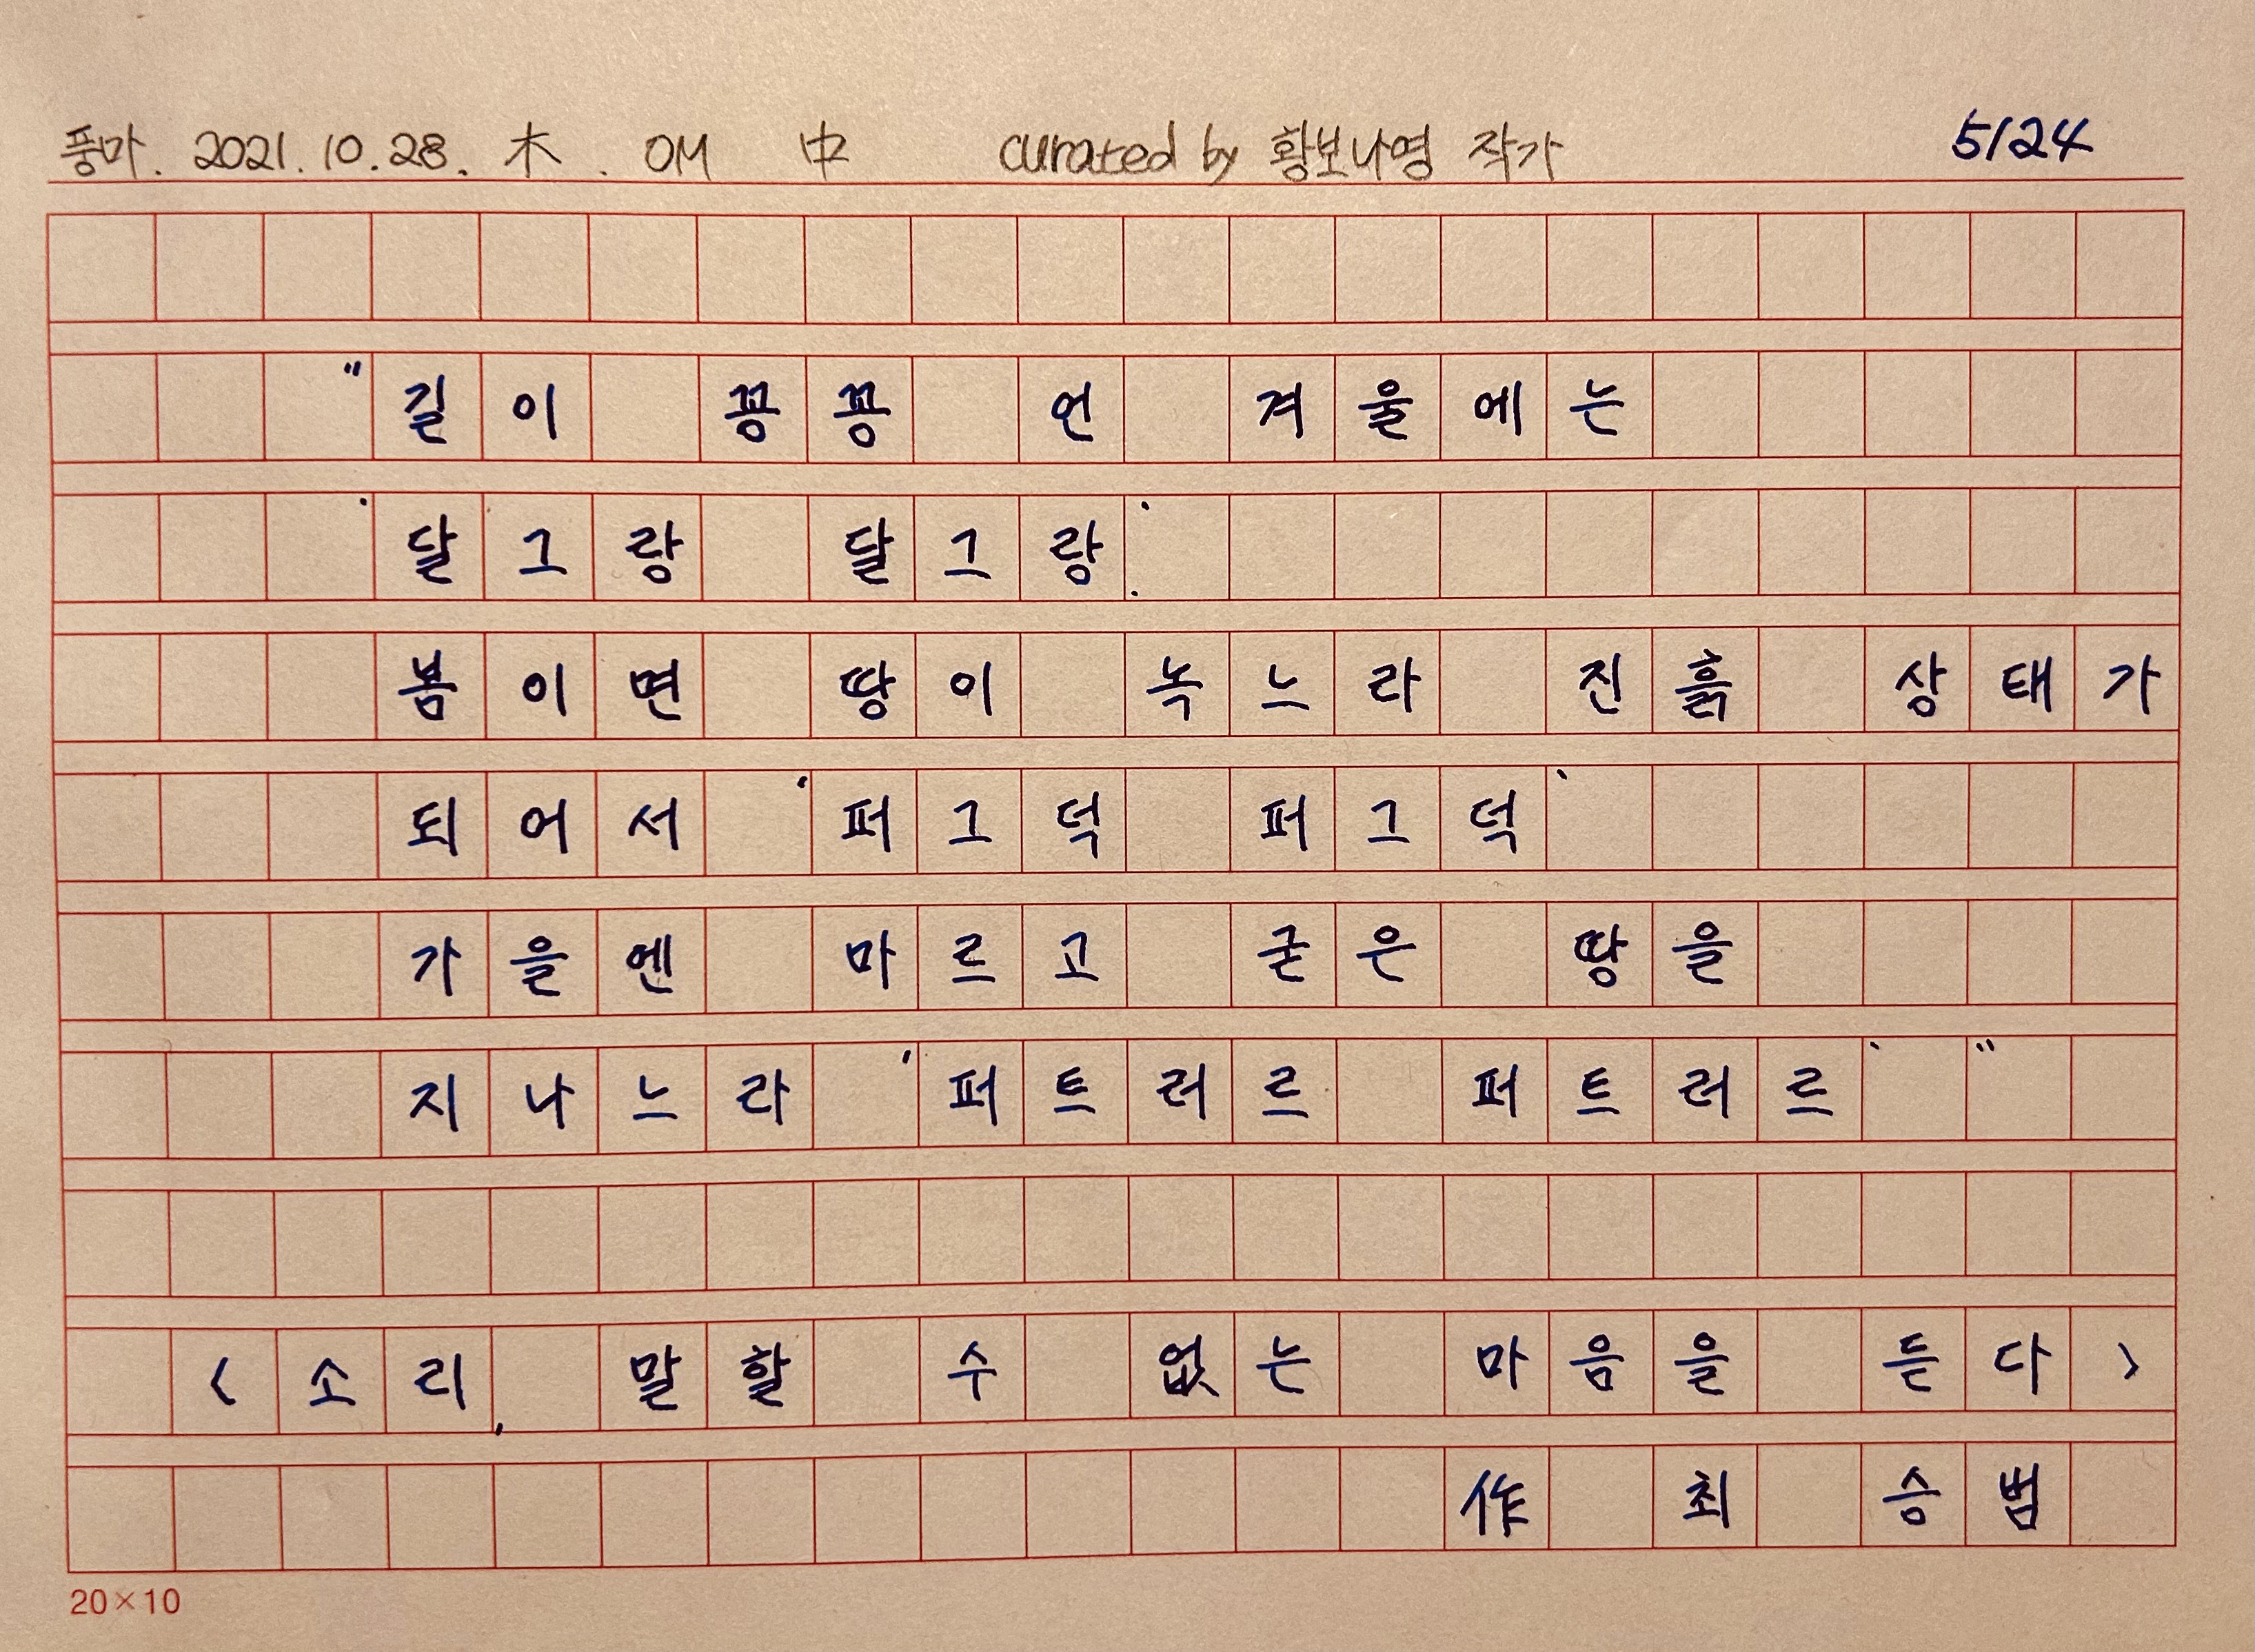 풍마. 2021. 10. 28. 木. OM 中 curated by 황보나영 작가 5/24
"길이 꽁꽁 언 겨울에는
'달그랑 달그랑'.
봄이면 땅이 녹느라 진흙 상태가
되어서 '퍼그덕 퍼그덕'
가을엔 마르고 굳은 땅을
지나느라 '퍼트러르 퍼트러르' "
<소리, 말할 수 없는 마음을 듣다>
作 최 승범
20×10